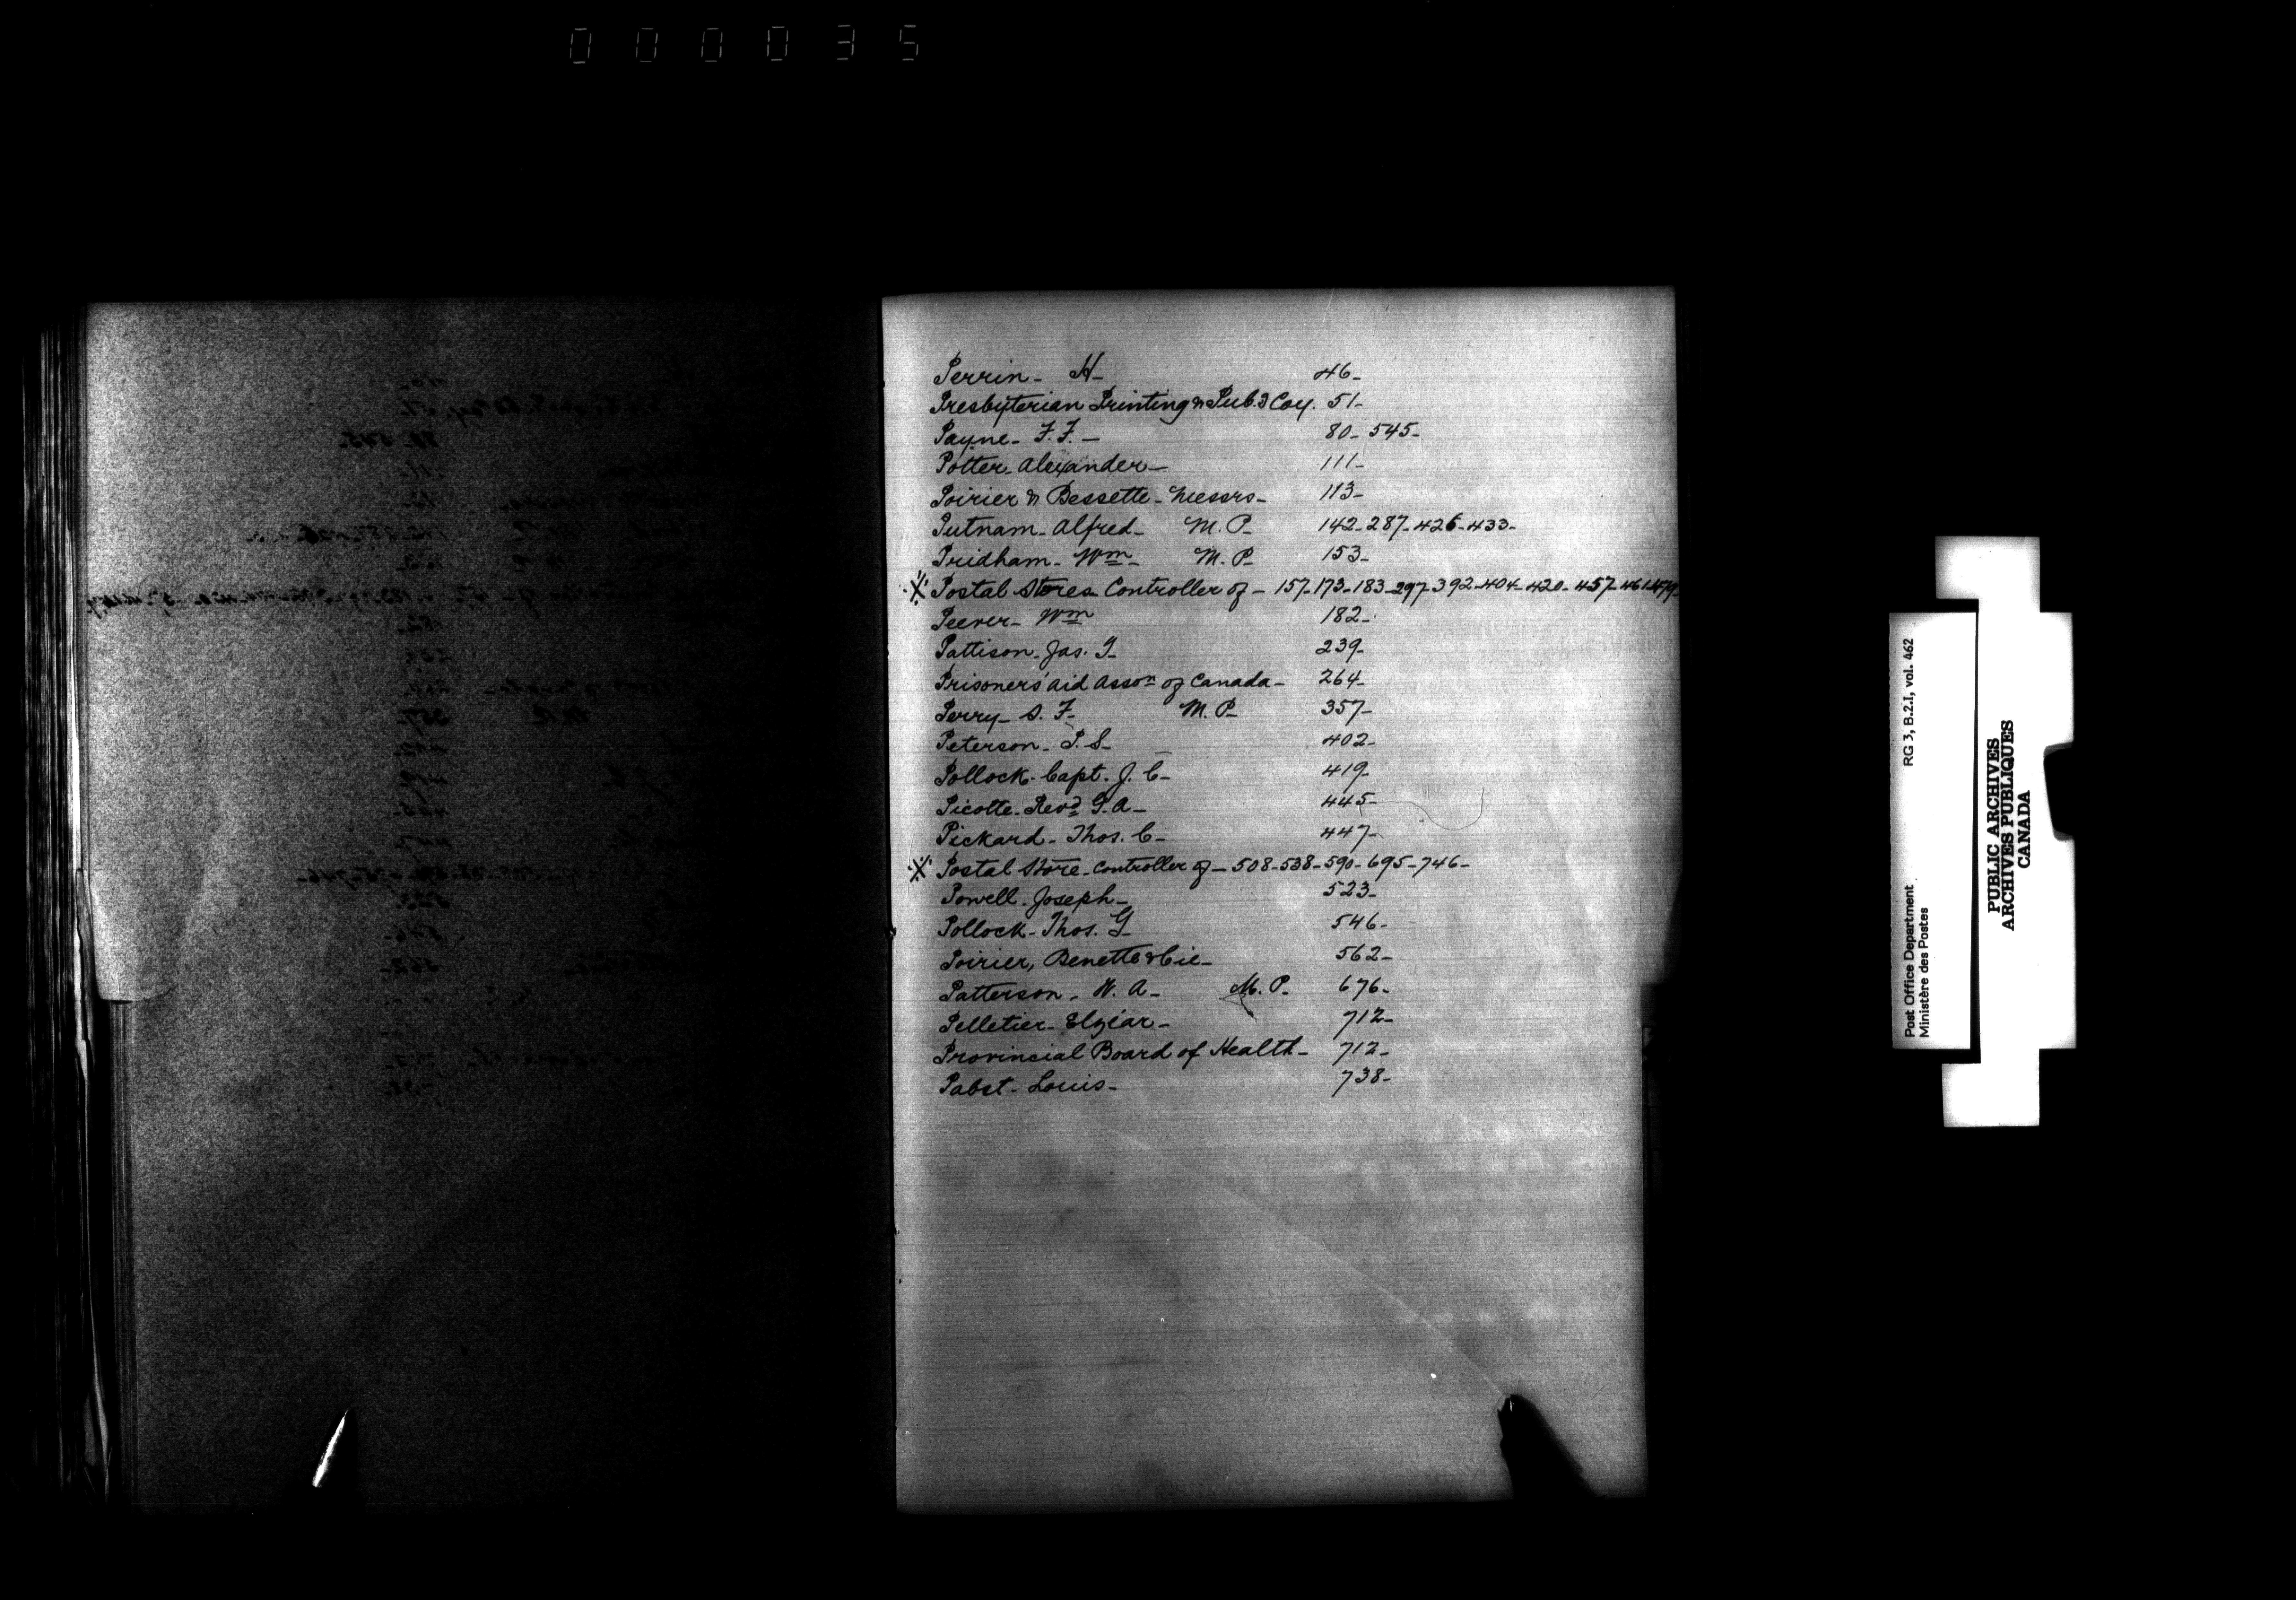 000035
Perrin - H - 46 -
Presbyterian Printing & Pub.g Coy. 51 -
Payne - F. F. - 80 - 545 -
Potter - Alexander - 111 -
Poirier & Bessette - Messrs - 113 -
Putnam - Alfred - M. P. - 142 - 287 - 426 - 433 -
Pridham - Wm - M. P. - 153 -
※ Postal Stores Controller of - 157 - 173 - 183 - 297 - 392 - 404 - 420 - 457 - 461 - 479 -
Peever - Wm 182 -
Pattison - Jas. G - 239 -
Prisoners' Aid Asson of Canada - 264 -
Perry - S. F. - M. P. - 357 -
Peterson - P. S. - 402 -
Pollock - Capt. J. C - 419 -
Picotte - Revd G. A - 445 -
Pickard - Thos. C - 447 -
※ Postal Store - Controller of - 508 - 538 - 590 - 695 - 746 -
Powell - Joseph - 523 -
Pollock - Thos. G - 546 -
Poirier, Benette & Cie - 562 -
Patterson - W. A - M. P. - 676 -
Pelletier - Elzéar - 712 -
Provincial Board of Health - 712 -
Pabst - Louis - 738 -
Post Office Department RG 3, B.2.I, vol. 462
Ministère des Postes
PUBLIC ARCHIVES
ARCHIVES PUBLIQUES
CANADA